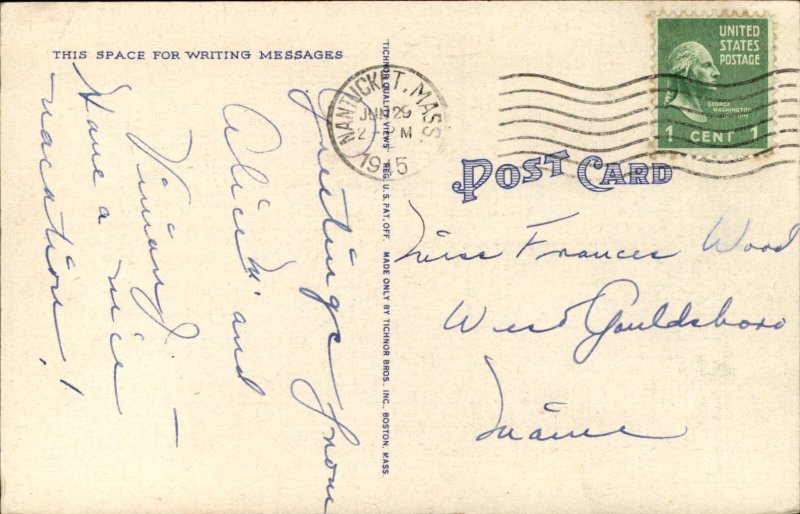 THIS SPACE FOR WRITING MESSAGES
Greetings from
Alice M. and
Vivian J —
Have a nice
vacation!
"TICHNOR QUALITY VIEWS" REG. U.S. PAT. OFF. MADE ONLY BY TICHNOR BROS., INC., BOSTON, MASS.
NANTUCKET, MASS.
JUN 29
2 - PM
UNITED
STATES
POSTAGE
GEORGE
WASHINGTON
1 CENT 1
POST CARD
Miss Frances Wood
West Gouldsboro
Maine